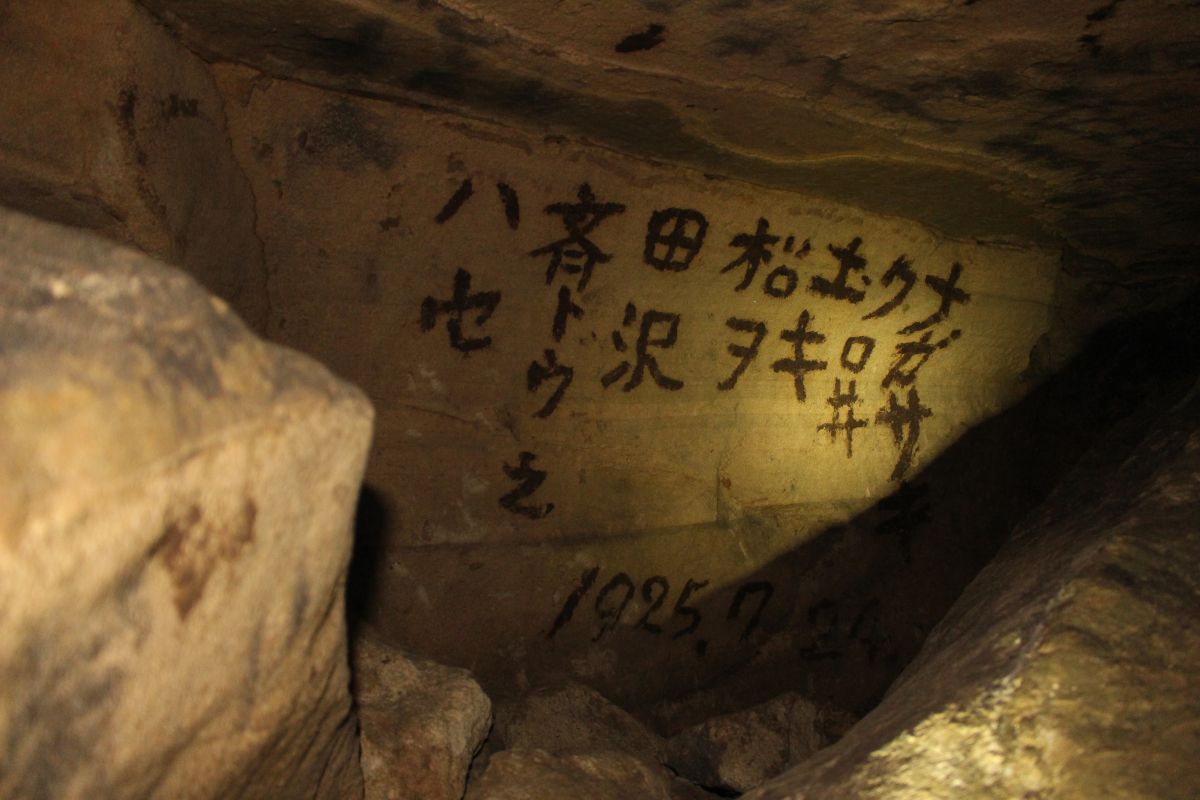 メガサキ
クロ井
土キ
松ヲ
田沢
斉トウ之
ハセ
1925.7.24